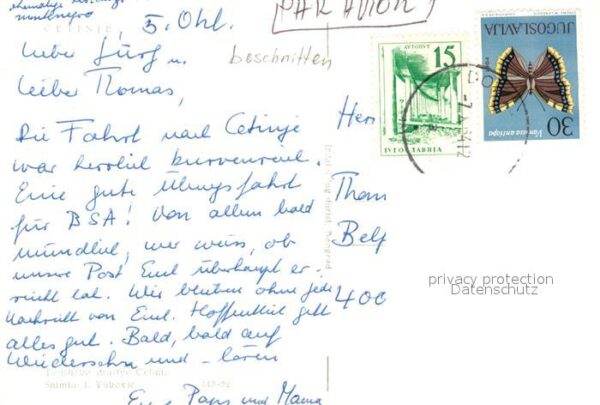 montenegro
CETINJE
5. Okt.
PAR AVION
Lieber Jürg u.
beschnitten
Lieber Thomas,
Die Fahrt nach Cetinje
war herrlich kurvenreich.
Eine gute Übungsfahrt
für BSA! Von allem bald
mündlich, wer weiss, ob
unsre Post Euch überhaupt er-
reicht hat. Wir bleiben ohne jede
Nachricht von Euch. Hoffentlich geht
alles gut. Bald, bald auf
Wiedersehn und
Eure Paps und Mama
Her
Thom
Belf
400
privacy protection
Datenschutz
15
JUGOSLAVIJA
Vanessa antiopa
30